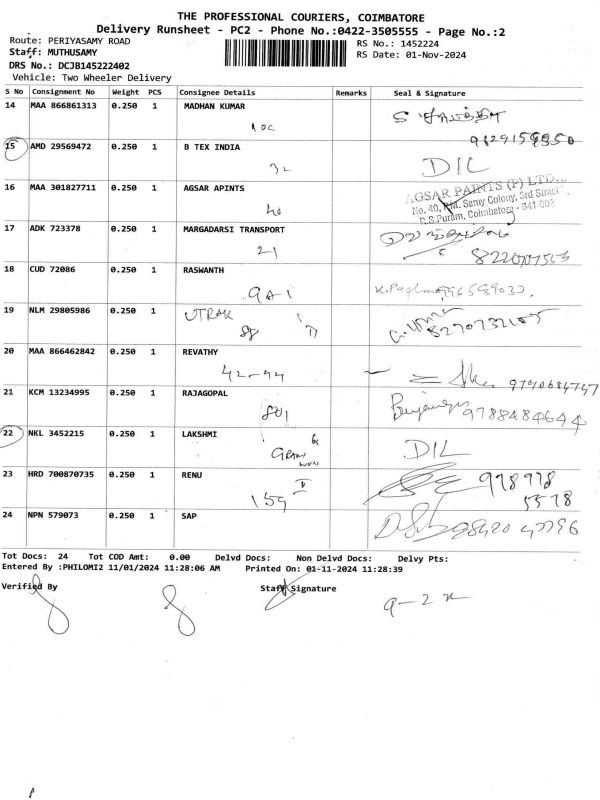 THE PROFESSIONAL COURIERS, COIMBATORE
Delivery Runsheet - PC2 - Phone No.:0422-3505555 - Page No.:2
Route: PERIYASAMY ROAD
RS No.: 1452224
Staff: MUTHUSAMY
RS Date: 01-Nov-2024
DRS No.: DCJB145222402
Vehicle: Two Wheeler Delivery
S No Consignment No Weight PCS Consignee Details Remarks Seal & Signature
14 MAA 866861313 0.250 1 MADHAN KUMAR
15 AMD 29569472 0.250 1 B TEX INDIA
32 DIL
16 MAA 301827711 0.250 1 AGSAR APINTS
AGSAR PAINTS (P) LTD.,
No. 40, Samy Colony, 3rd Street
R.S.Puram, Coimbatore - 641 002
17 ADK 723378 0.250 1 MARGADARSI TRANSPORT
21
18 CUD 72086 0.250 1 RASWANTH
19 NLM 29805986 0.250 1 UTRAK
88
20 MAA 866462842 0.250 1 REVATHY
42-44
9790684747
21 KCM 13234995 0.250 1 RAJAGOPAL
801 9788484644
22 NKL 3452215 0.250 1 LAKSHMI
DIL
23 HRD 700870735 0.250 1 RENU
159 978978
5578
24 NPN 579073 0.250 1 SAP
Tot Docs: 24 Tot COD Amt: 0.00 Delvd Docs: Non Delvd Docs: Delvy Pts:
Entered By :PHILOMI2 11/01/2024 11:28:06 AM Printed On: 01-11-2024 11:28:39
Verified By Staff Signature